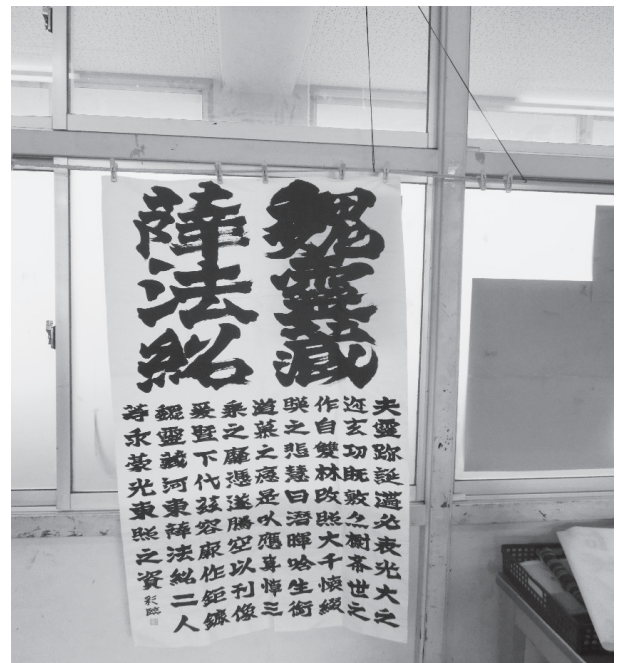 魏靈藏
薛法紹
夫靈跡誕遘必表光大之
迹玄功既敷亦樹希世之
作自雙林改照大千懷綴
暎之悲慧日潛暉唅生銜
道慕之痛是以應真悼三
乘之靡憑遂騰空以刊像
爰暨下代茲容厥作鉅鏕
魏靈藏河東薛法紹二人
等求豪光東照之資 彩臨